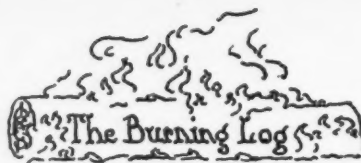 The Burning Log